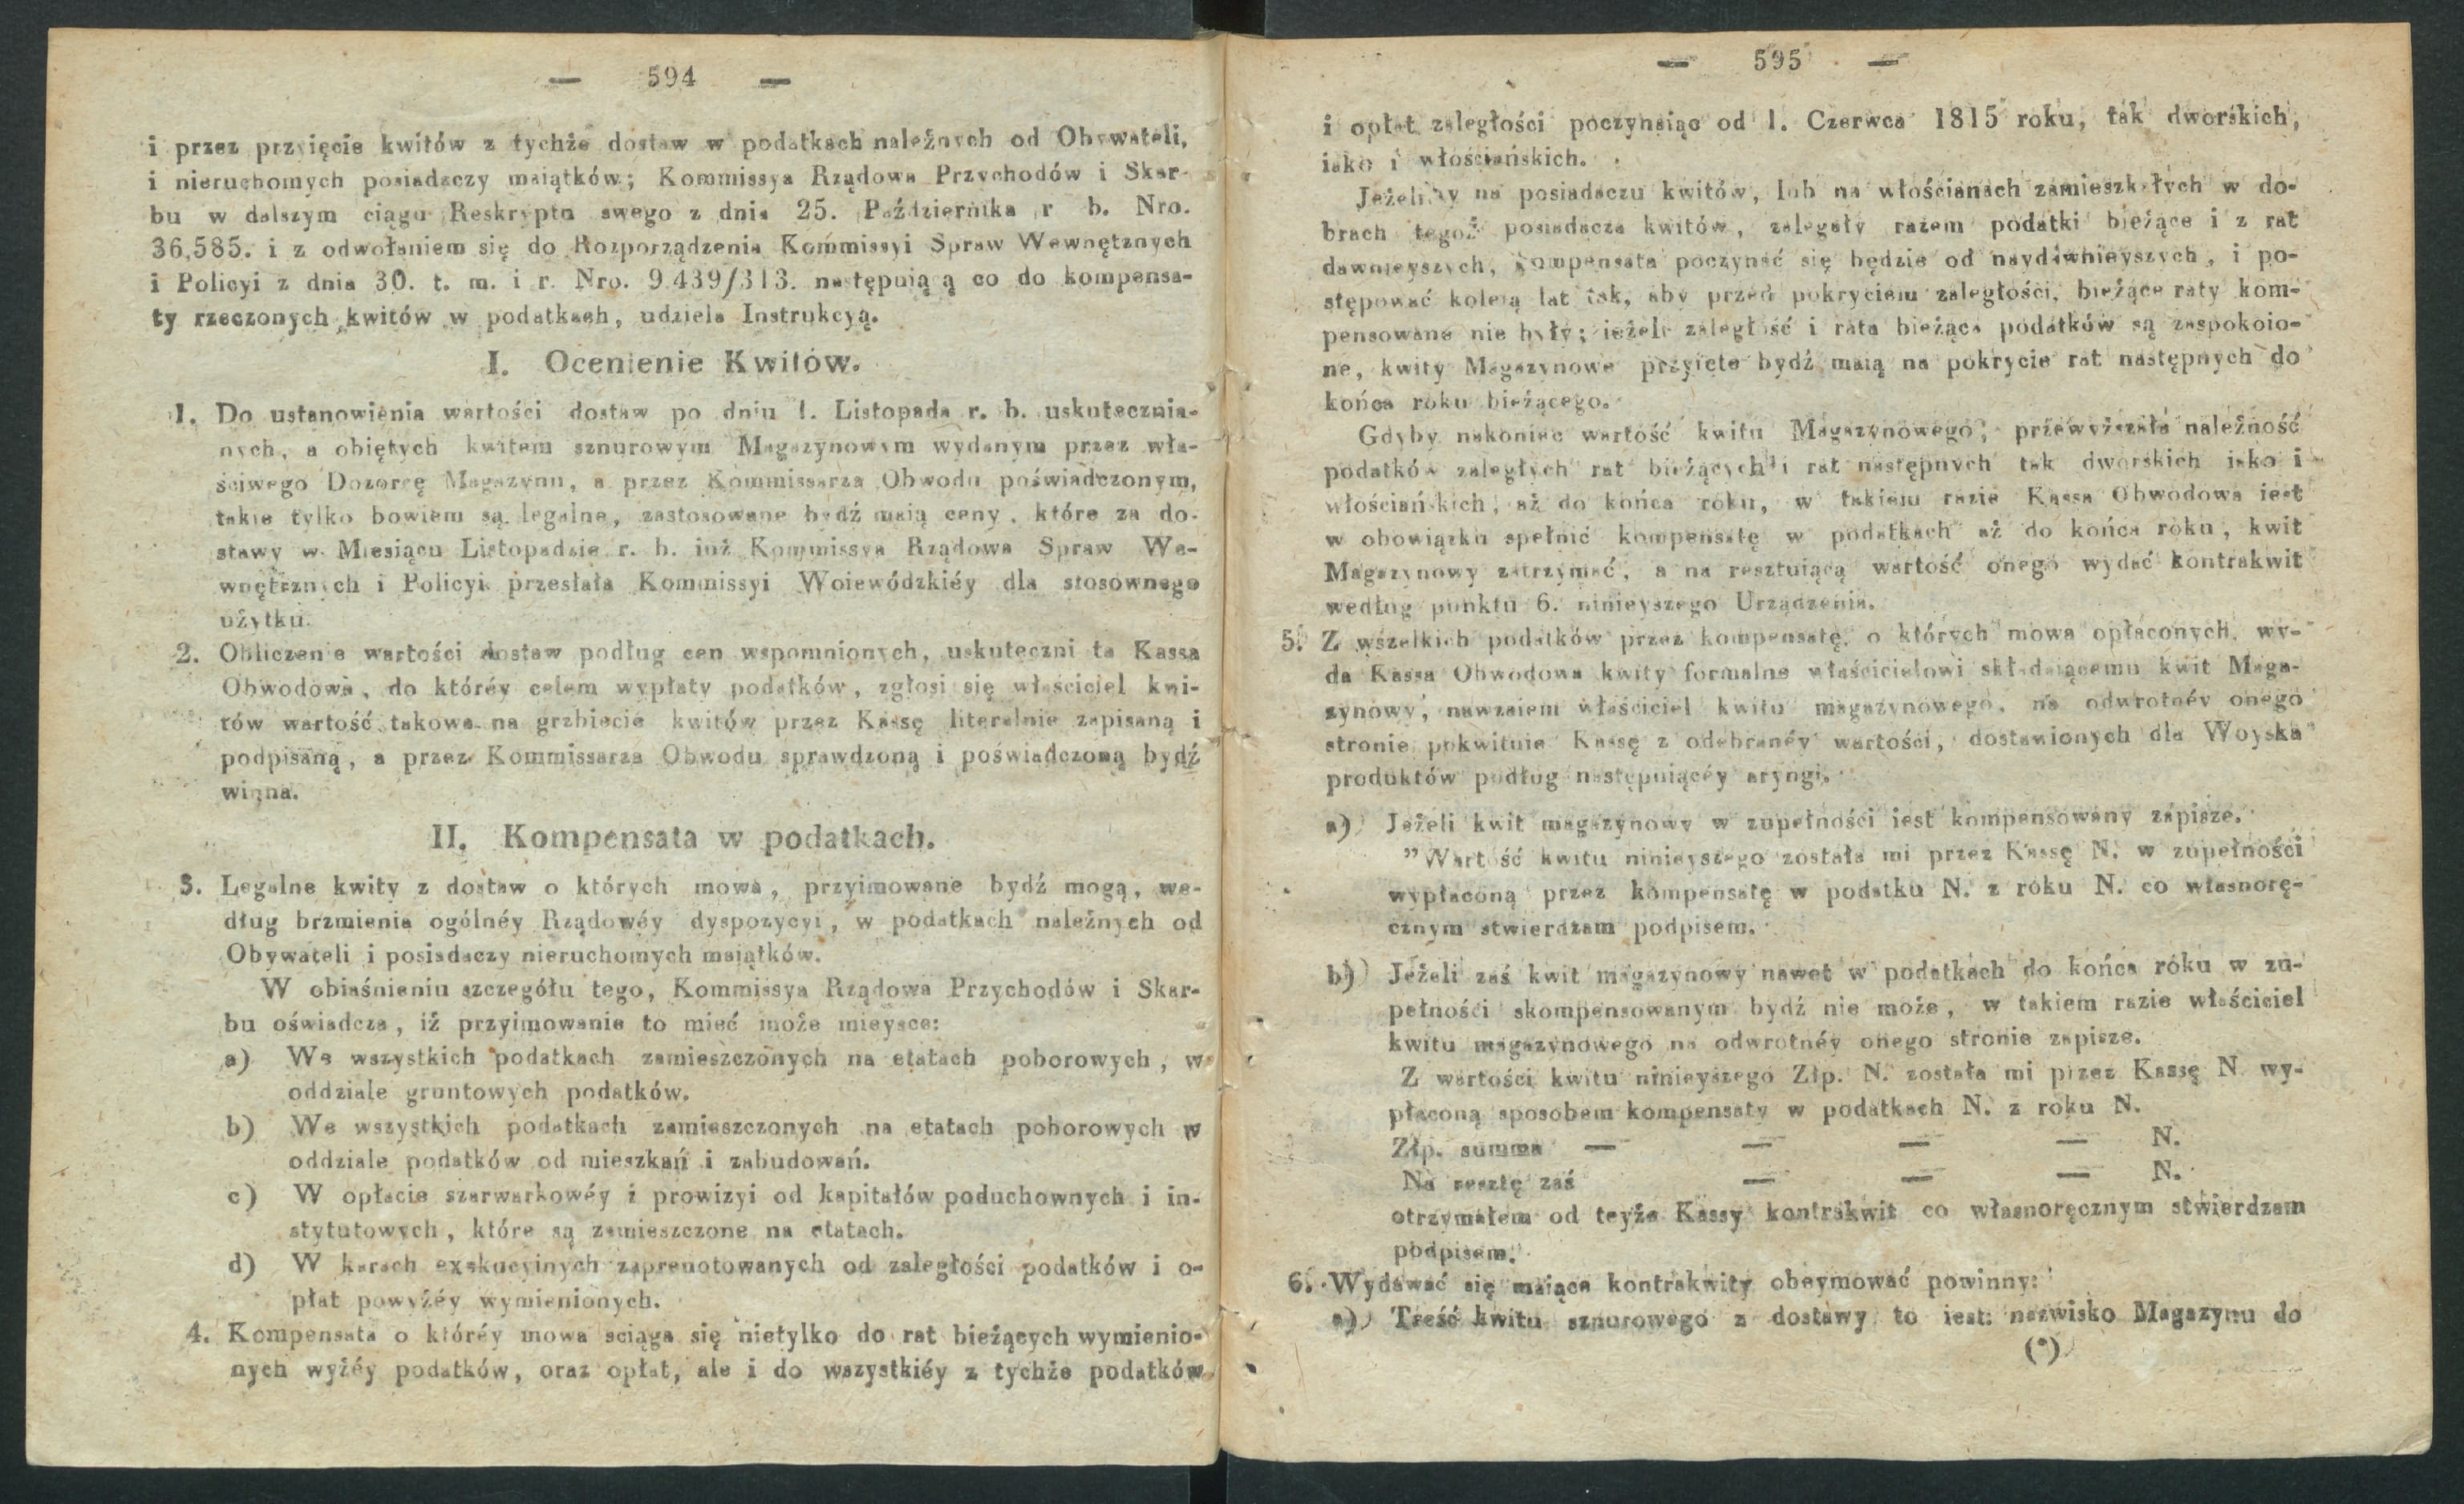 — 594 —
i przez przyięcie kwitów z tychże dostaw w podatkach należnych od Obywateli,
i nieruchomych posiadaczy maiątków; Kommissya Rządowa Przychodów i Skar-
bu w dalszym ciągu Reskryptu swego z dnia 25. Października r b. Nro.
36,585. i z odwołaniem się do Rozporządzenia Kommissyi Spraw Wewnętznych
i Policyi z dnia 30. t. m. i r. Nro. 9439/313. następuiącą co do kompensa-
ty rzeczonych kwitów w podatkach, udziela Instrukcyą.
I. Ocenienie Kwitów.
1. Do ustanowienia wartości dostaw po dniu 1. Listopada r. b. uskutecznia-
nych, a obiętych kwitem sznurowym Magazynowym wydanym przez wła-
ściwego Dozorcę Magazynu, a przez Kommissarza Obwodu poświadczonym,
takie tylko bowiem są legalne, zastosowane bydź maią ceny, które za do-
stawy w Miesiącu Listopadzie r. b. iuż Kommissya Rządowa Spraw We-
wnętrznych i Policyi przesłała Kommissyi Woiewódzkiéy dla stosownego
użytku.
2. Obliczenie wartości dostaw podług cen wspomnionych, uskuteczni ta Kassa
Obwodowa, do któréy celem wypłaty podatków, zgłosi się właściciel kwi-
tów wartość takowa na grzbiecie kwitów przez Kassę literalnie zapisaną i
podpisaną, a przez Kommissarza Obwodu sprawdzoną i poświadczoną bydź
winna.
II. Kompensata w podatkach.
3. Legalne kwity z dostaw o których mowa, przyimowane bydź mogą, we-
dług brzmienia ogólnéy Rządowéy dyspozycyi, w podatkach należnych od
Obywateli i posiadaczy nieruchomych maiątków.
W obiaśnieniu szczegółu tego, Kommissya Rządowa Przychodów i Skar-
bu oświadcza, iż przyimowanie to mieć może mieysce:
a) We wszystkich podatkach zamieszczonych na etatach poborowych, w
oddziale gruntowych podatków.
b) We wszystkich podatkach zamieszczonych na etatach poborowych w
oddziale podatków od mieszkań i zabudowań.
c) W opłacie szarwarkowéy i prowizyi od kapitałów poduchownych i in-
stytutowych, które są zamieszczone na etatach.
d) W karach exekucyinych zaprenotowanych od zaległości podatków i o-
płat powyżéy wymienionych.
4. Kompensata o któréy mowa sciąga się nietylko do rat bieżących wymienio-
nych wyżéy podatków, oraz opłat, ale i do wszystkiéy z tychże podatków
— 595 —
i opłat zaległości poczynaiąc od 1. Czerwca 1815 roku, tak dworskich,
iako i włościańskich.
Jeżeliby na posiadaczu kwitów, lub na włościanach zamieszkałych w do-
brach tegoż posiadacza kwitów, zalegały razem podatki bieżące i z rat
dawnieyszych, kompensata poczynać się będzie od naydawnieyszych, i po-
stępować koleią lat tak, aby przed pokryciem zaległości, bieżące raty kom-
pensowane nie były; ieżeli zaległość i rata bieżąca podatków są zaspokoio-
ne, kwity Magazynowe przyięte bydź maią na pokrycie rat następnych do
końca roku bieżącego.
Gdyby nakoniec wartość kwitu Magazynowego, przewyższała należność
podatków zaległych rat bieżących i rat następnych tak dworskich iako i
włościańskich, aż do końca roku, w takiem razie Kassa Obwodowa iest
w obowiązku spełnić kompensatę w podatkach aż do końca roku, kwit
Magazynowy zatrzymać, a na resztuiącą wartość onego wydać kontrakwit
według punktu 6. ninieyszego Urządzenia.
5. Z wszelkich podatków przez kompensatę, o których mowa opłaconych, wy-
da Kassa Obwodowa kwity formalne właścicielowi składaiącemu kwit Maga-
zynowy, nawzaiem właściciel kwitu magazynowego, na odwrotnéy onego
stronie pokwituie Kassę z odebranéy wartości, dostawionych dla Woyska
produktów podług następuiącéy aryngi.
a) Jeżeli kwit magazynowy w zupełności iest kompensowany zapisze.
"Wartość kwitu ninieyszego została mi przez Kassę N. w zupełności
wypłaconą przez kompensatę w podatku N. z roku N. co własnorę-
cznym stwierdzam podpisem.
b) Jeżeli zaś kwit magazynowy nawet w podatkach do końca róku w zu-
pełności skompensowanym bydź nie może, w takiem razie właściciel
kwitu magazynowego na odwrotnéy onego stronie zapisze.
Z wartości kwitu ninieyszego Złp. N. została mi przez Kassę N wy-
płaconą sposobem kompensaty w podatkach N. z roku N.
Złp. summa — — — — N.
Na resztę zaś — — — N.
otrzymałem od teyże Kassy kontrakwit co własnoręcznym stwierdzam
podpisem.
6. Wydawać się maiące kontrakwity obeymować powinny:
a) Treść kwitu sznurowego z dostawy to iest: nazwisko Magazynu do
(*)